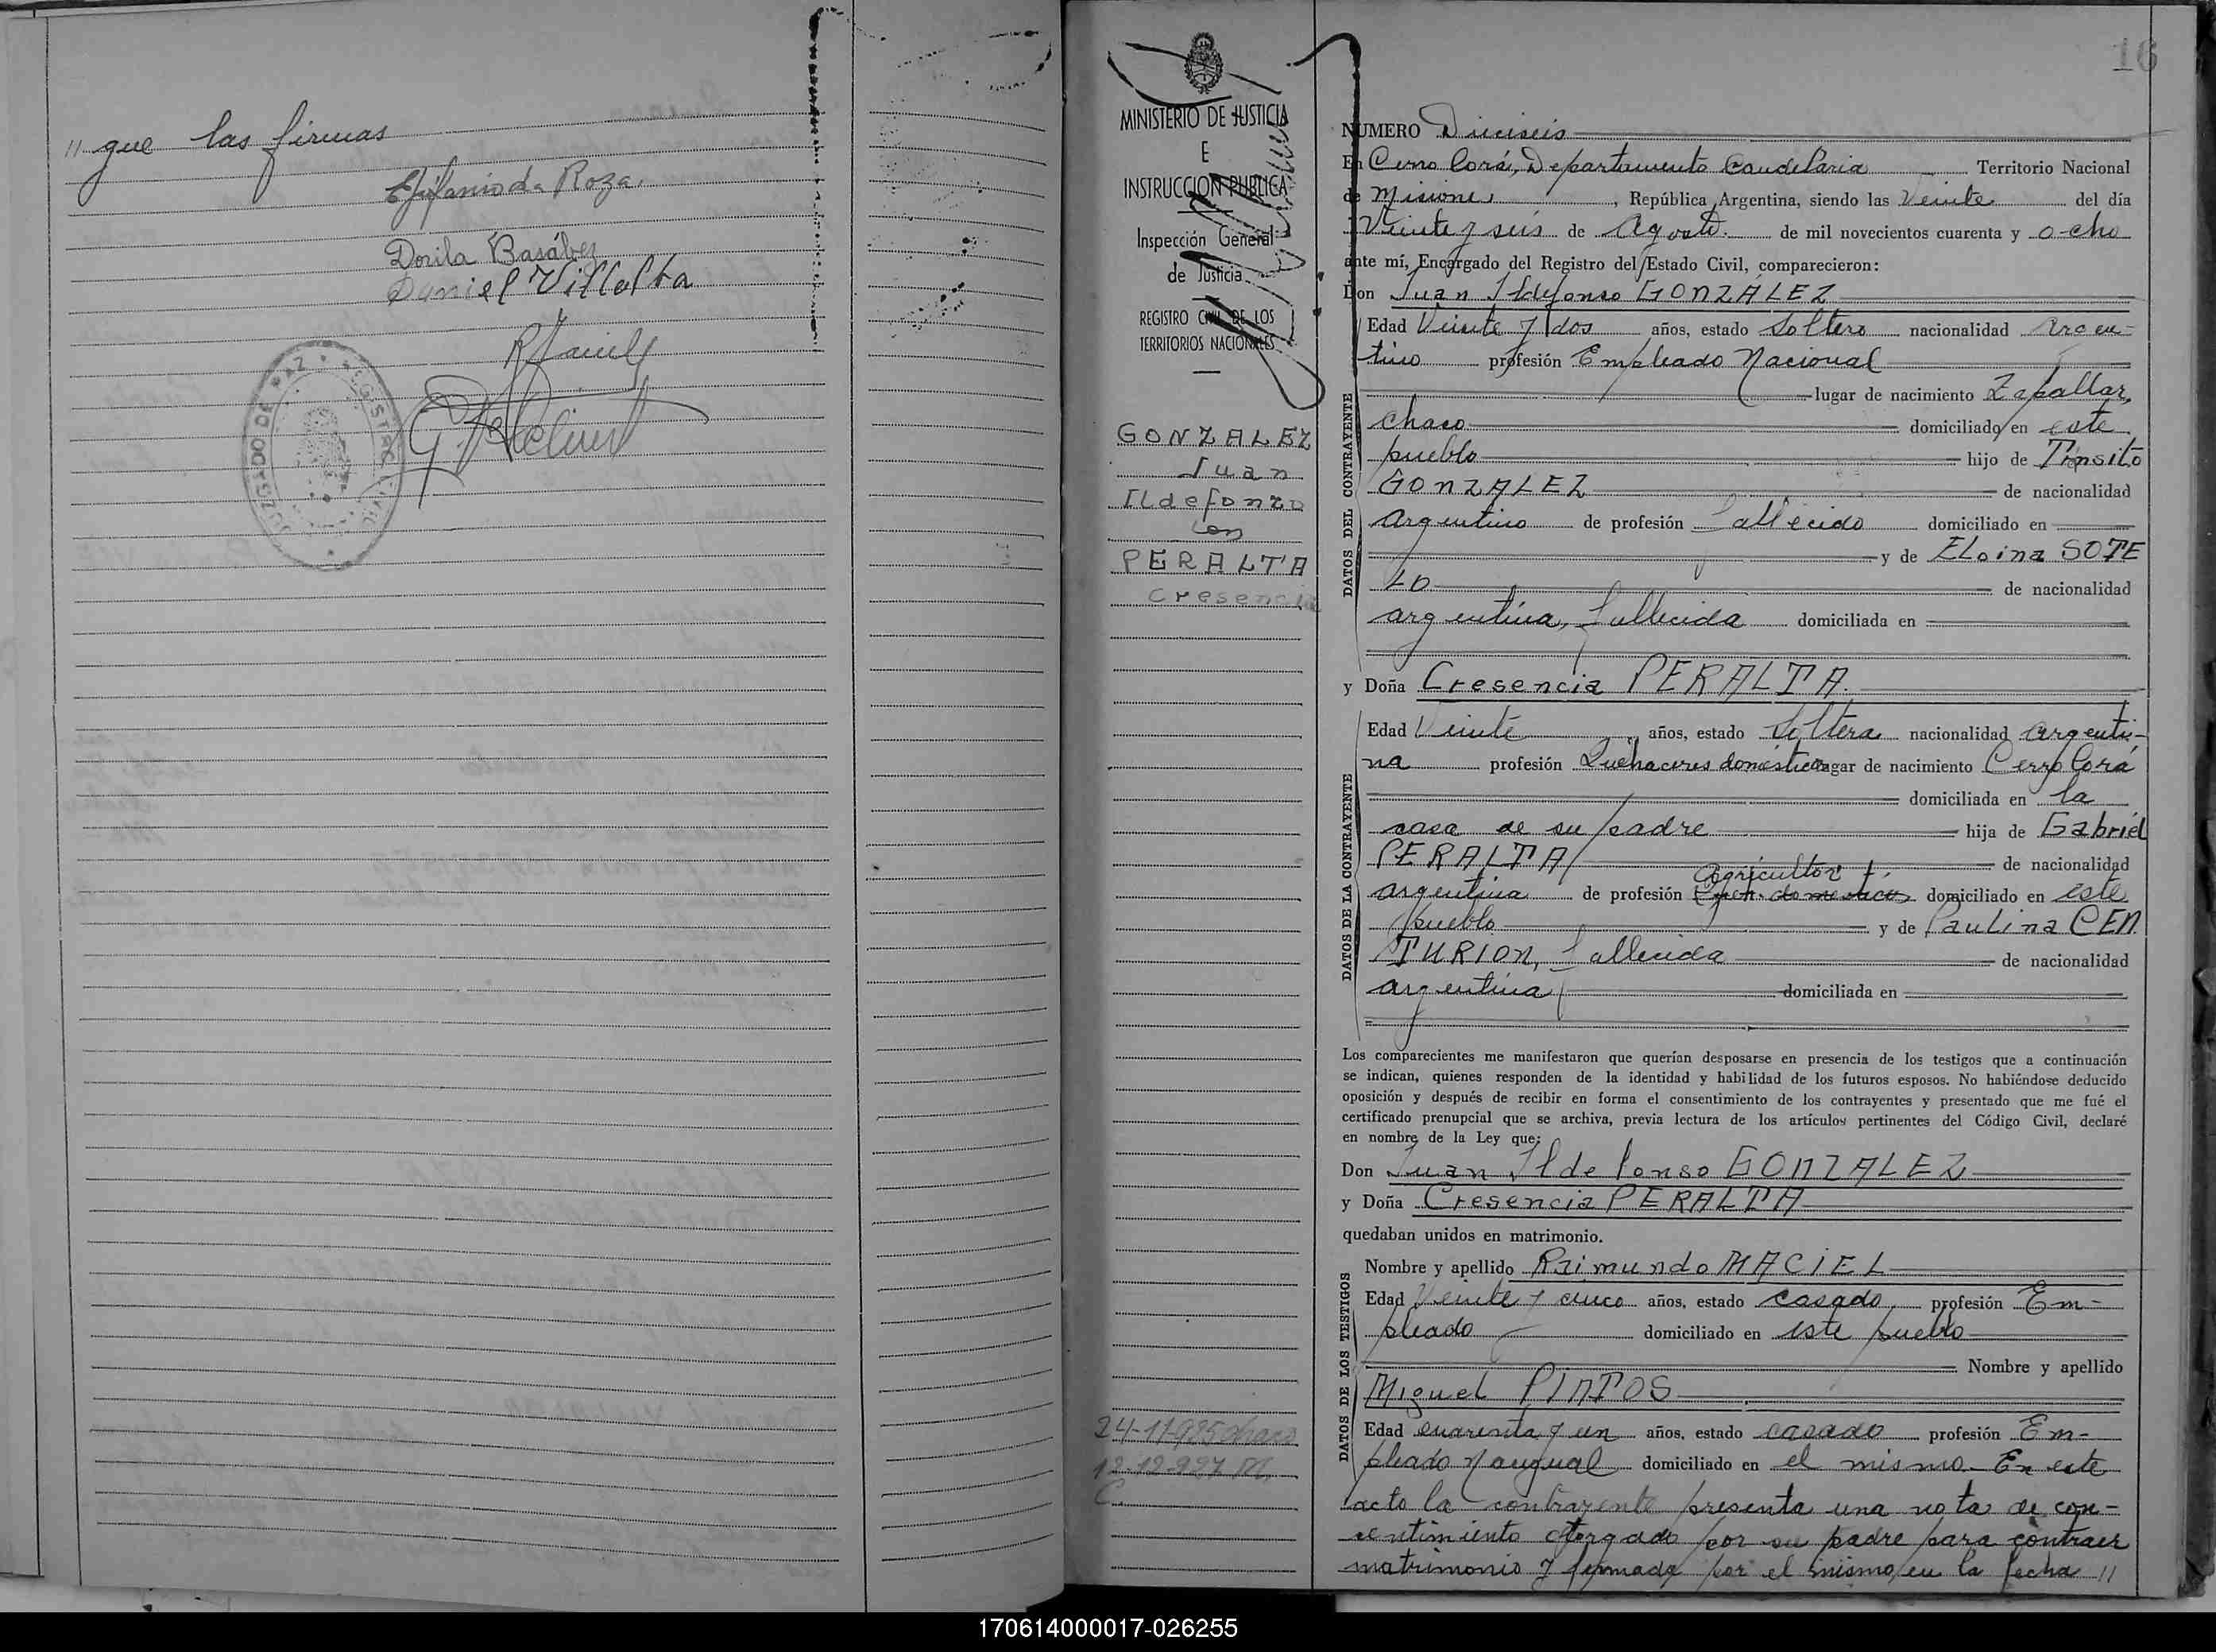 // que las firmas
Epifanio da Roza.
Dorila Basábes
Daniel Villalba
JUZGADO DE PAZ • REGISTRO CIVIL •
16
MINISTERIO DE JUSTICIA
E
INSTRUCCION PUBLICA
Inspección General
de Justicia
REGISTRO CIVIL DE LOS
TERRITORIOS NACIONALES
GONZALEZ
Juan
Ildefonzo
con
PERALTA
Cresencia
24-11-985
12-12-927
C.
NUMERO Dieciseis
En Cerro Corá, Departamento Candelaria Territorio Nacional
de Misiones, República Argentina, siendo las Veinte del día
Veinte y seis de Agosto de mil novecientos cuarenta y ocho
ante mí, Encargado del Registro del Estado Civil, comparecieron:
Don Juan Ildefonso GONZALEZ
DATOS DEL CONTRAYENTE
Edad Veinte y dos años, estado Soltero nacionalidad Argen-
tino profesión Empleado Nacional
lugar de nacimiento Zapallar,
Chaco domiciliado en este
pueblo hijo de Tránsito
GONZALEZ de nacionalidad
argentino de profesión fallecido domiciliado en
y de ELoina SOTE
LO de nacionalidad
argentina, fallecida domiciliada en
y Doña Cresencia PERALTA.
DATOS DE LA CONTRAYENTE
Edad Veinte años, estado Soltera nacionalidad argenti-
na profesión Quehaceres domésticos lugar de nacimiento Cerro Corá
domiciliada en la
casa de su padre hija de Gabriel
PERALTA de nacionalidad
agricultor
argentina de profesión domiciliado en este
pueblo y de Paulina CEN
TURION, fallecida de nacionalidad
argentina domiciliada en
Los comparecientes me manifestaron que querían desposarse en presencia de los testigos que a continuación
se indican, quienes responden de la identidad y habilidad de los futuros esposos. No habiéndose deducido
oposición y después de recibir en forma el consentimiento de los contrayentes y presentado que me fué el
certificado prenupcial que se archiva, previa lectura de los artículos pertinentes del Código Civil, declaré
en nombre de la Ley que:
Don Juan Ildefonso GONZALEZ
y Doña Cresencia PERALTA
quedaban unidos en matrimonio.
DATOS DE LOS TESTIGOS
Nombre y apellido Raimundo MACIEL
Edad Veinte y cinco años, estado casado profesión Em-
pleado domiciliado en este pueblo
Nombre y apellido
Miguel PINTOS
Edad cuarenta y un años, estado casado profesión Em-
pleado domiciliado en el mismo.- En este
acto la contrayente presenta una nota de con-
sentimiento otorgado por su padre para contraer
matrimonio y firmada por el mismo, en la fecha //
170614000017-026255